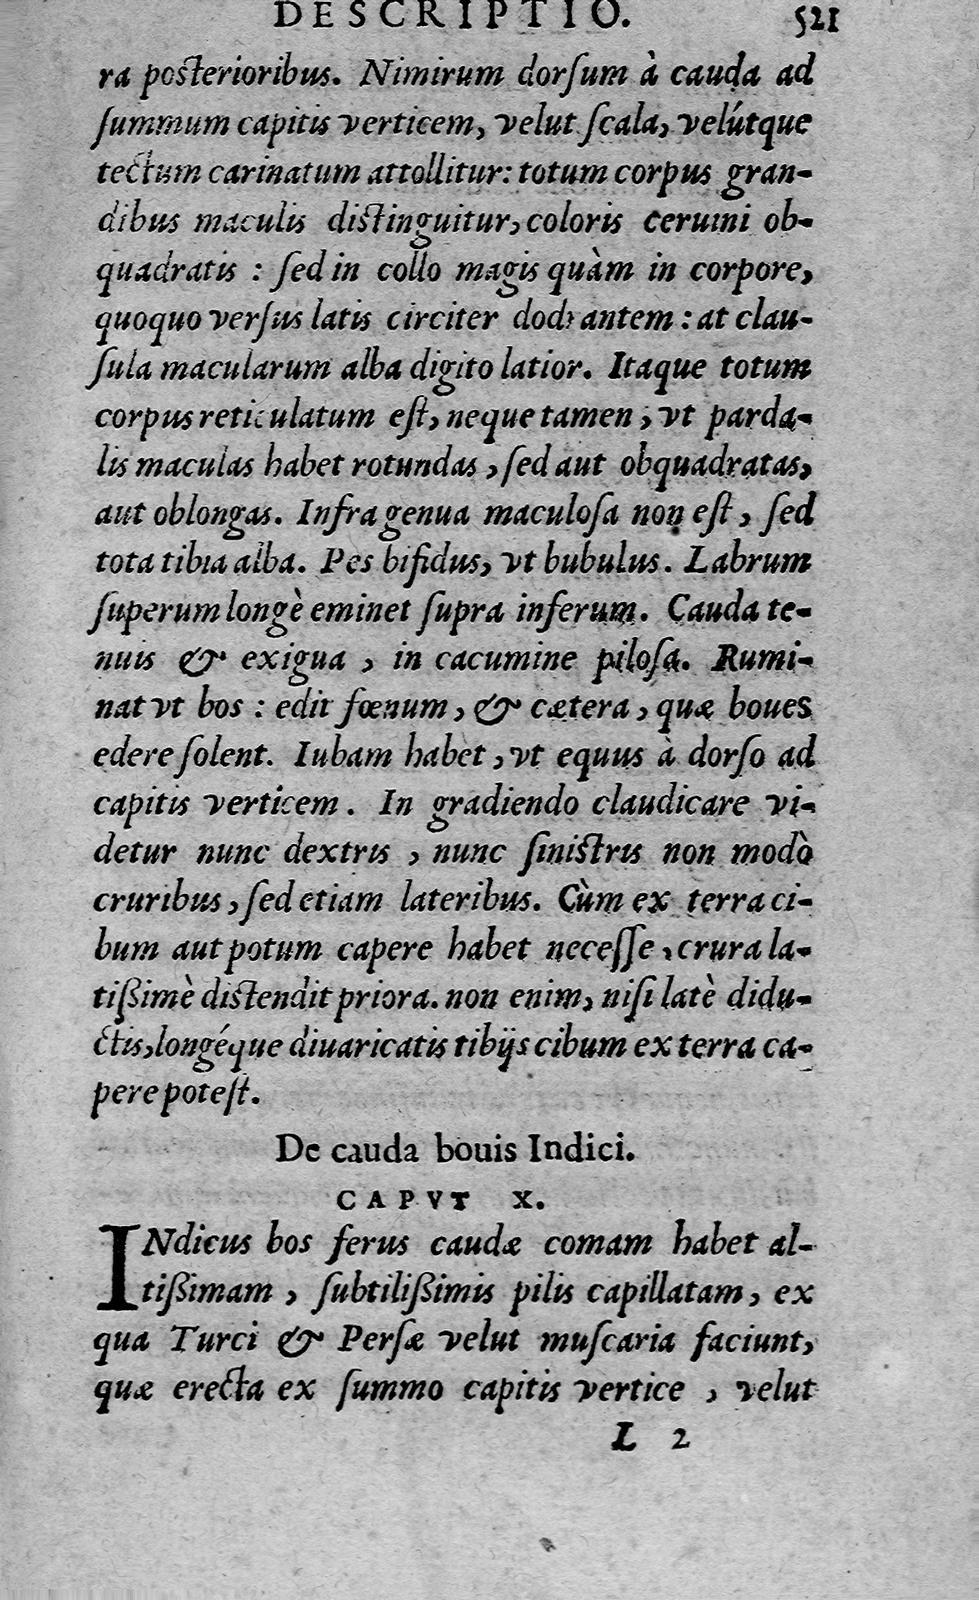 DESCRIPTIO. 521
ra posterioribus. Nimirum dorſum à cauda ad
ſummum capitis verticem, velut ſcala, velútque
tectum carinatum attollitur: totum corpus gran-
dibus maculis distinguitur, coloris ceruini ob-
quadratis : ſed in collo magis quàm in corpore,
quoquo verſus latis circiter dodrantem : at clau-
ſula macularum alba digito latior. Itaque totum
corpus reticulatum eſt, neque tamen, vt parda-
lis maculas habet rotundas, ſed aut obquadratas,
aut oblongas. Infra genua maculoſa non eſt, ſed
tota tibia alba. Pes bifidus, vt bubulus. Labrum
ſuperum longè eminet ſupra inferum. Cauda te-
nuis & exigua, in cacumine piloſa. Rumi-
nat vt bos : edit fœnum, & cætera, quæ boues
edere ſolent. Iubam habet, vt equus à dorſo ad
capitis verticem. In gradiendo claudicare vi-
detur nunc dextris, nunc ſinistris non modò
cruribus, ſed etiam lateribus. Cùm ex terra ci-
bum aut potum capere habet neceſſe, crura la-
tißimè distendit priora. non enim, niſi latè didu-
ctis, longéque diuaricatis tibijs cibum ex terra ca-
pere poteſt.
De cauda bouis Indici.
CAPVT X.
INdicus bos ferus caudæ comam habet al-
tißimam, ſubtilißimis pilis capillatam, ex
qua Turci & Perſæ velut muſcaria faciunt,
quæ erecta ex ſummo capitis vertice, velut
L 2